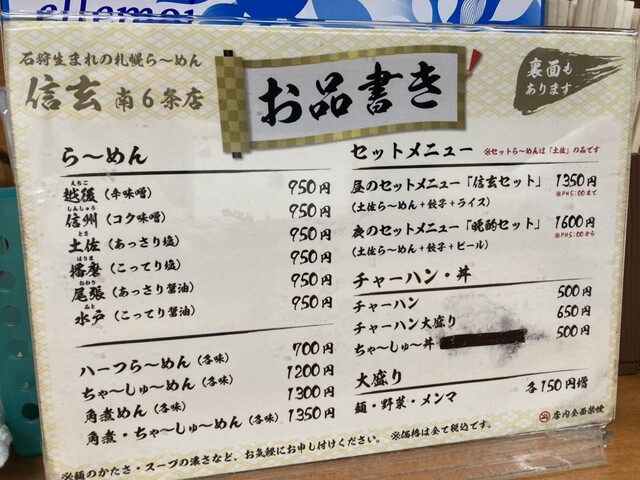 石狩生まれの札幌ら〜めん
信玄 南6条店
お品書き
裏面も
あります
ら〜めん
えちご
越後（辛味噌） 950円
しんしゅう
信州（コク味噌） 950円
とさ
土佐（あっさり塩） 950円
はりま
播磨（こってり塩） 950円
おわり
尾張（あっさり醤油） 950円
みと
水戸（こってり醤油） 950円
ハーフら〜めん（各味） 700円
ちゃ〜しゅ〜めん（各味） 1200円
角煮めん（各味） 1300円
角煮・ちゃ〜しゅ〜めん（各味） 1350円
セットメニュー ※セットら〜めんは「土佐」のみです
昼のセットメニュー「信玄セット」 1350円
（土佐ら〜めん＋餃子＋ライス） ※PM5:00まで
夜のセットメニュー「晩酌セット」 1600円
（土佐ら〜めん＋餃子＋ビール） ※PM5:00から
チャーハン・丼
チャーハン 500円
チャーハン大盛り 650円
ちゃ〜しゅ〜丼 500円
大盛り
麺・野菜・メンマ 各150円増
店内全面禁煙
※麺のかたさ・スープの濃さなど、お気軽にお申し付けください。 ※価格は全て税込です。